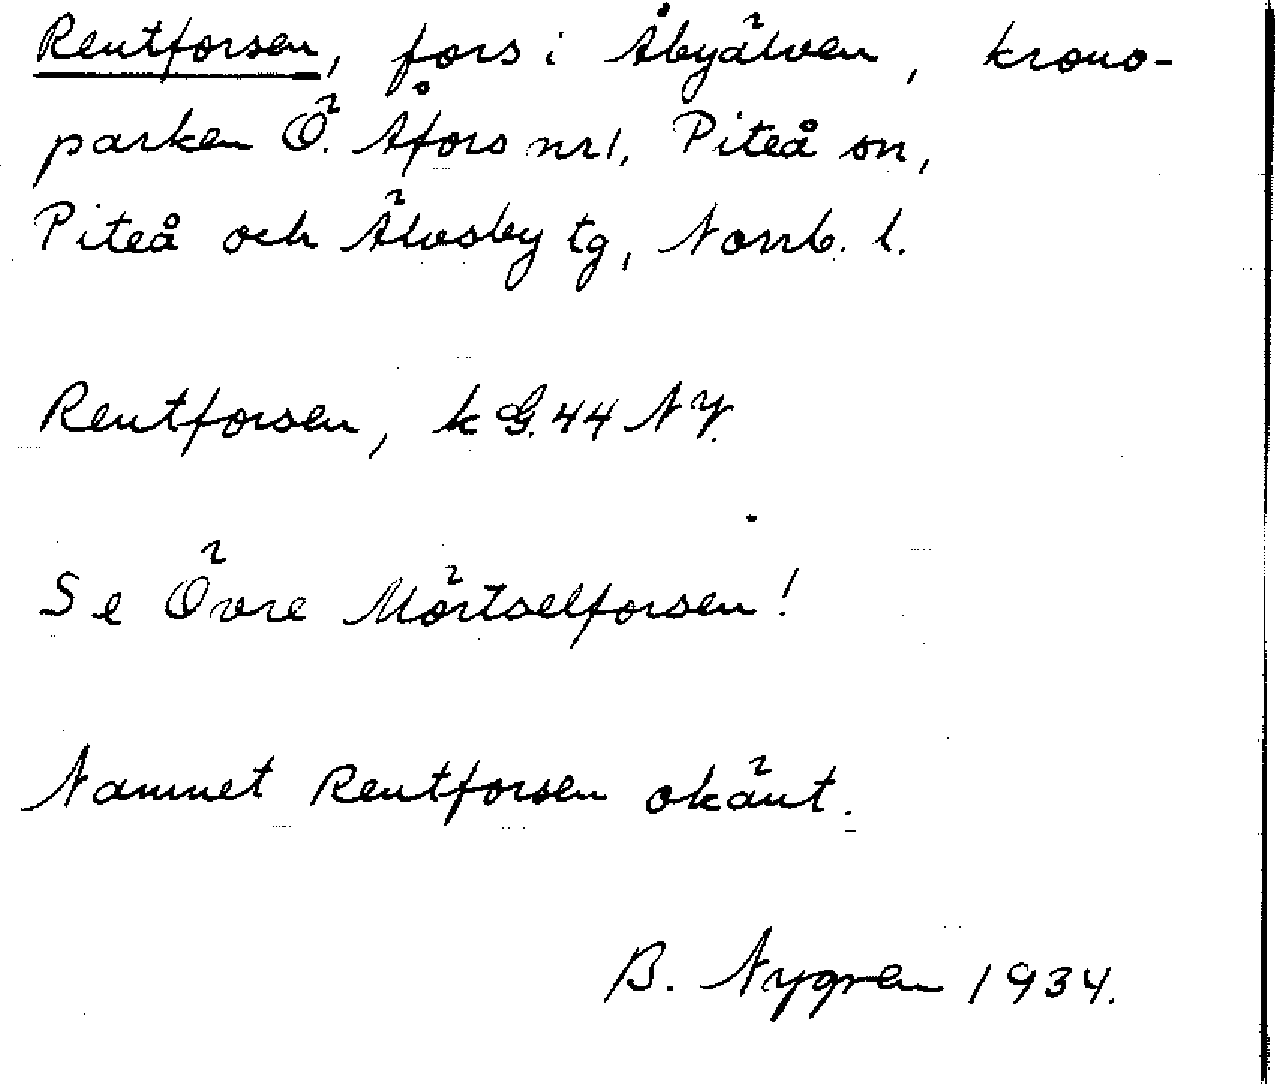 Rentforsen, fors i Åbyälven, krono-
parken Ö. Åfors nr 1, Piteå sn,
Piteå och Älvsby tg, Norrb. l.
Rentforsen, k G. 44 NY.
Se Övre Mörtselforsen!
Namnet Rentforsen okänt.
B. Nygren 1934.